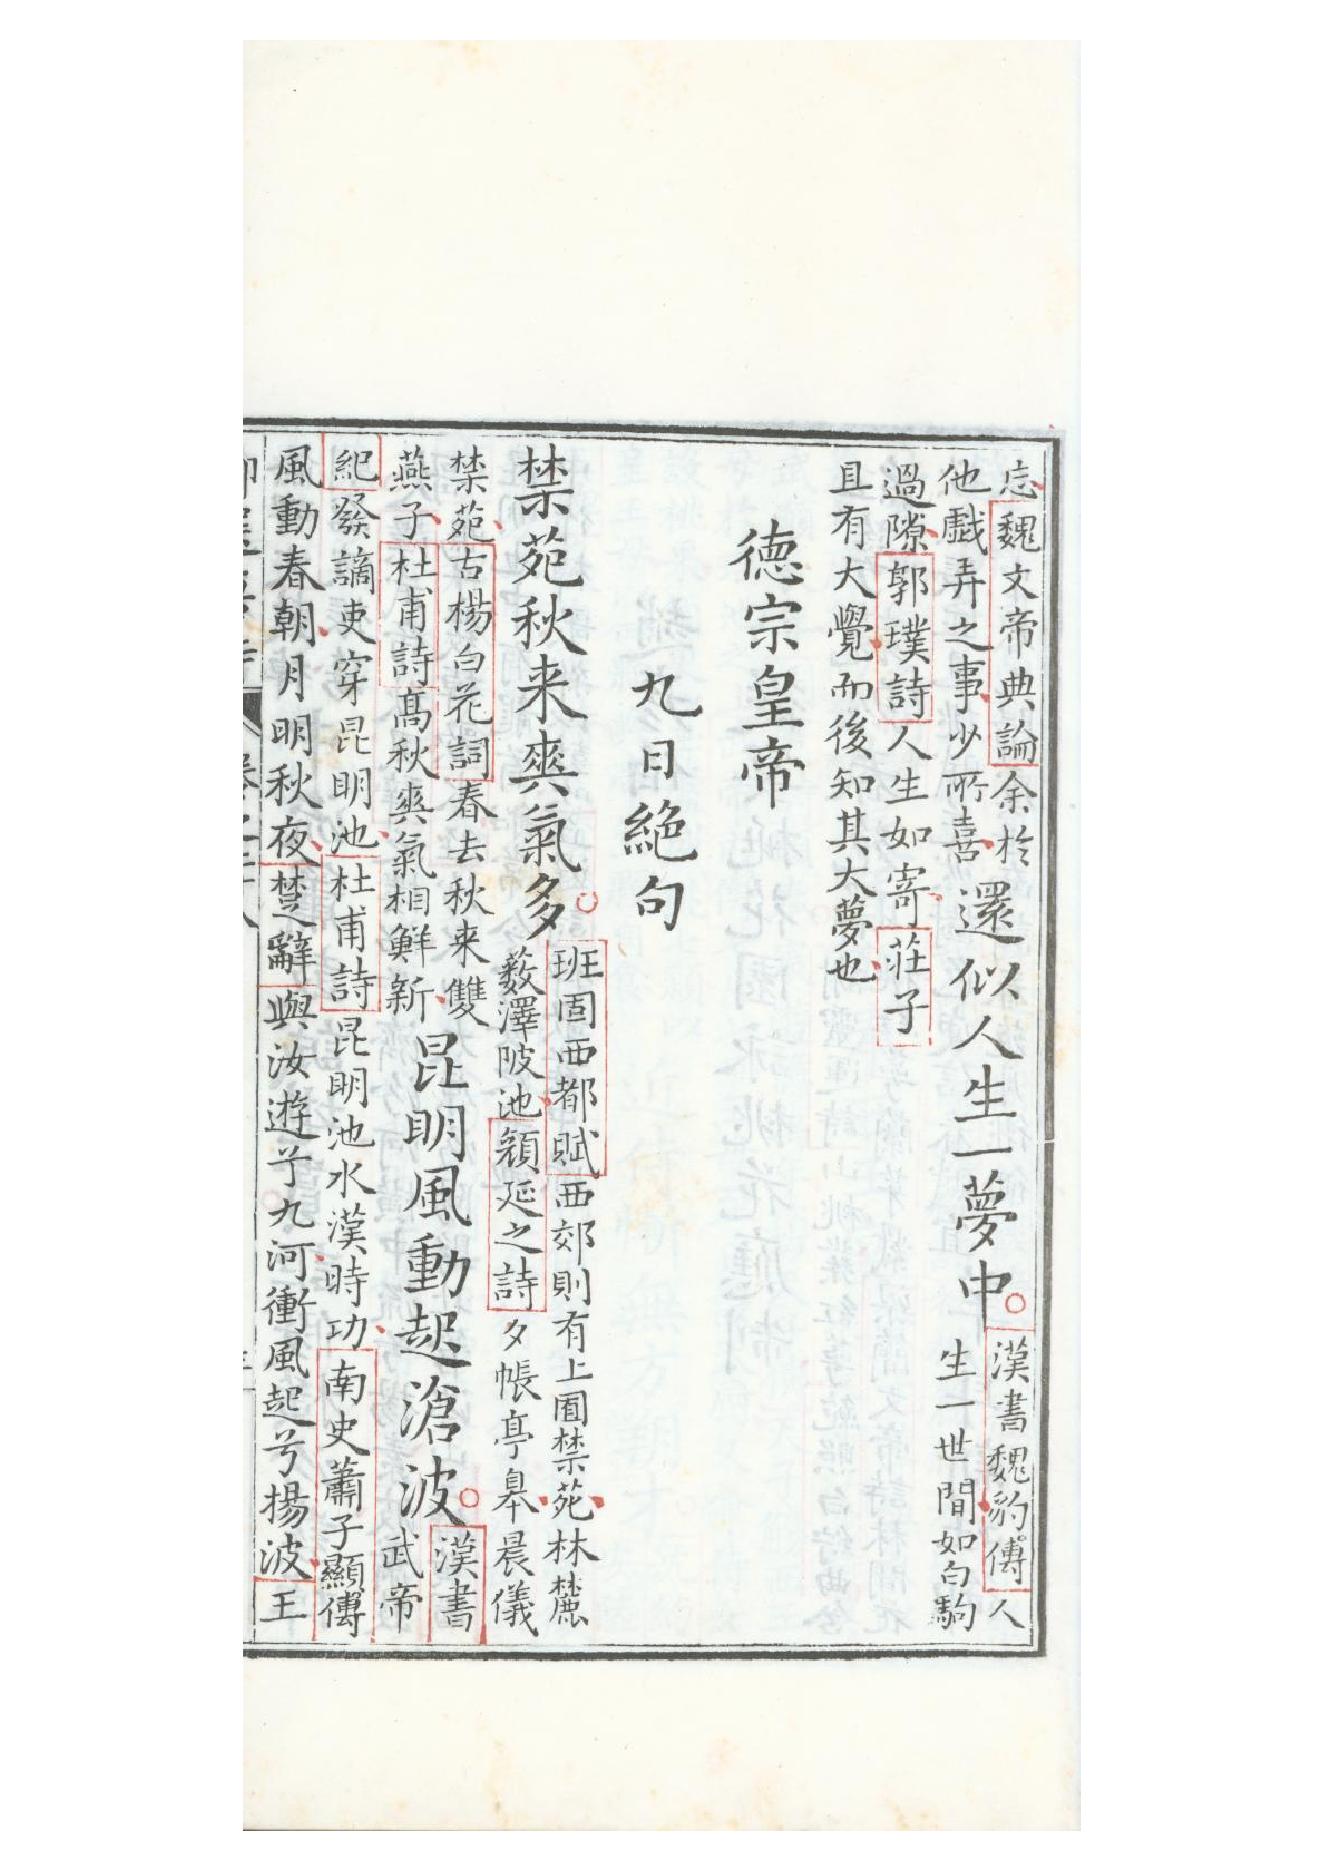 忘魏文帝典論余於
他戲弄之事少所喜
還似人生一夢中
漢書魏豹傳人
生一世間如白駒
過隙郭璞詩人生如寄莊子
且有大覺而後知其大夢也
德宗皇帝
九日絕句
禁苑秋来爽氣多
班固西都賦西郊則有上囿禁苑林麓
薮澤陂池顏延之詩夕帳亭皋晨儀
禁苑古楊白花詞春去秋来雙
燕子杜甫詩高秋爽氣相鮮新
昆明風動起滄波
漢書
武帝
紀發謫吏穿昆明池杜甫詩昆明池水漢時功南史蕭子顯傳
風動春朝月明秋夜楚辭與汝遊兮九河衝風起兮揚波王